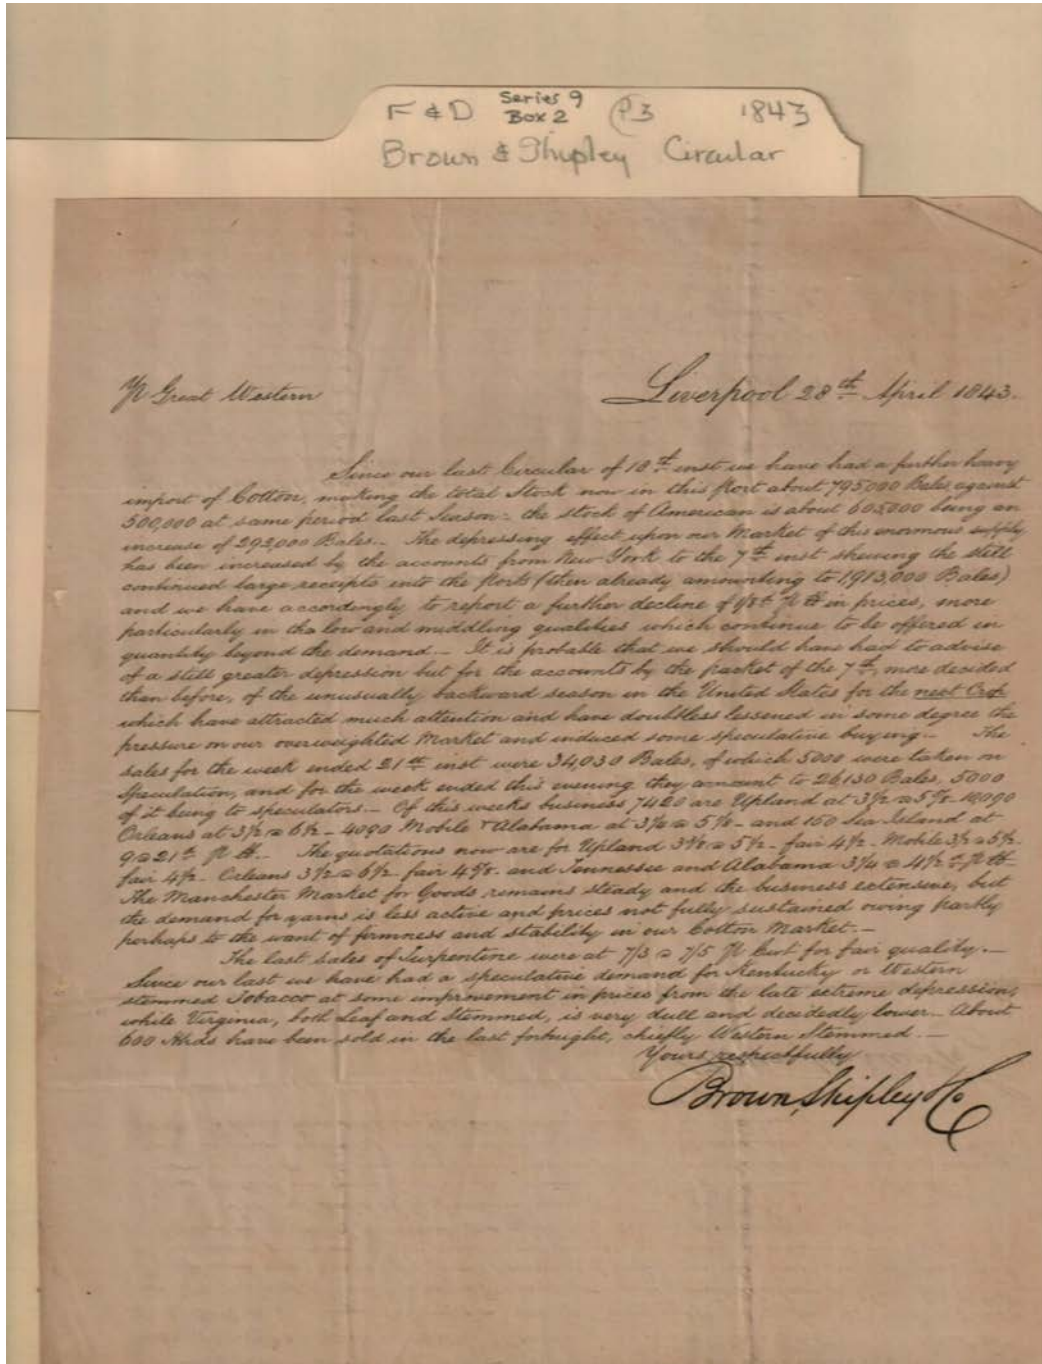 F & D Series 9 Box 2 P3 1843
Brown & Shipley Circular
Pr Great Western
Liverpool 28th April 1843.
Since our last Circular of 18th inst we have had a further heavy
import of Cotton, making the total Stock now in this Port about 795,000 Bales, against
500,000 at same period last Season - the stock of American is about 605,000 being an
increase of 292,000 Bales. - The depressing effect upon our Market of this enormous supply
has been increased by the accounts from New York to the 7th inst shewing the still
continued large receipts into the Ports (then already amounting to 1,913,000 Bales)
and we have accordingly to report a further decline of 1/8d pr lb in prices, more
particularly in the low and middling qualities which continue to be offered in
quantity beyond the demand - It is probable that we should have had to advise
of a still greater depression but for the accounts by the packet of the 7th, more decided
than before, of the unusually backward season in the United States for the next Crop
which have attracted much attention and have doubtless lessened in some degree the
pressure on our overweighted Market and induced some speculative buying. - The
sales for the week ended 21st inst were 34,030 Bales, of which 5000 were taken on
Speculation, and for the week ended this evening they amount to 26130 Bales, 5000
of it being to speculators. - Of this weeks business 7420 are Upland at 3 1/2 @ 5 5/8 - 10,090
Orleans at 3 1/2 @ 6 1/2 - 4090 Mobile & Alabama at @ 5 5/8 - and 150 Sea Island at
9 @ 21d pr lb. - The quotations now are for Upland @ 5 1/2 - fair 4 1/2 - Mobile 3 1/2 @ 5 1/2
fair 4 1/2 - Orleans 3 1/2 @ 6 1/2 fair 4 5/8 - and Tennessee and Alabama 3 1/4 @ 4 1/2d pr lb
The Manchester Market for Goods remains steady and the business extensive, but
the demand for yarns is less active and prices not fully sustained owing partly
perhaps to the want of firmness and stability in our Cotton Market. -
The last sales of Turpentine were at 7/3 @ 7/5 pr Cwt for fair quality. -
Since our last we have had a speculative demand for Kentucky or Western
stemmed Tobacco at some improvement in prices from the late extreme depression,
while Virginia, both Leaf and Stemmed, is very dull and decidedly lower - About
600 Hhds have been sold in the last fortnight, chiefly Western Stemmed. -
Yours respectfully
Brown, Shipley & Co